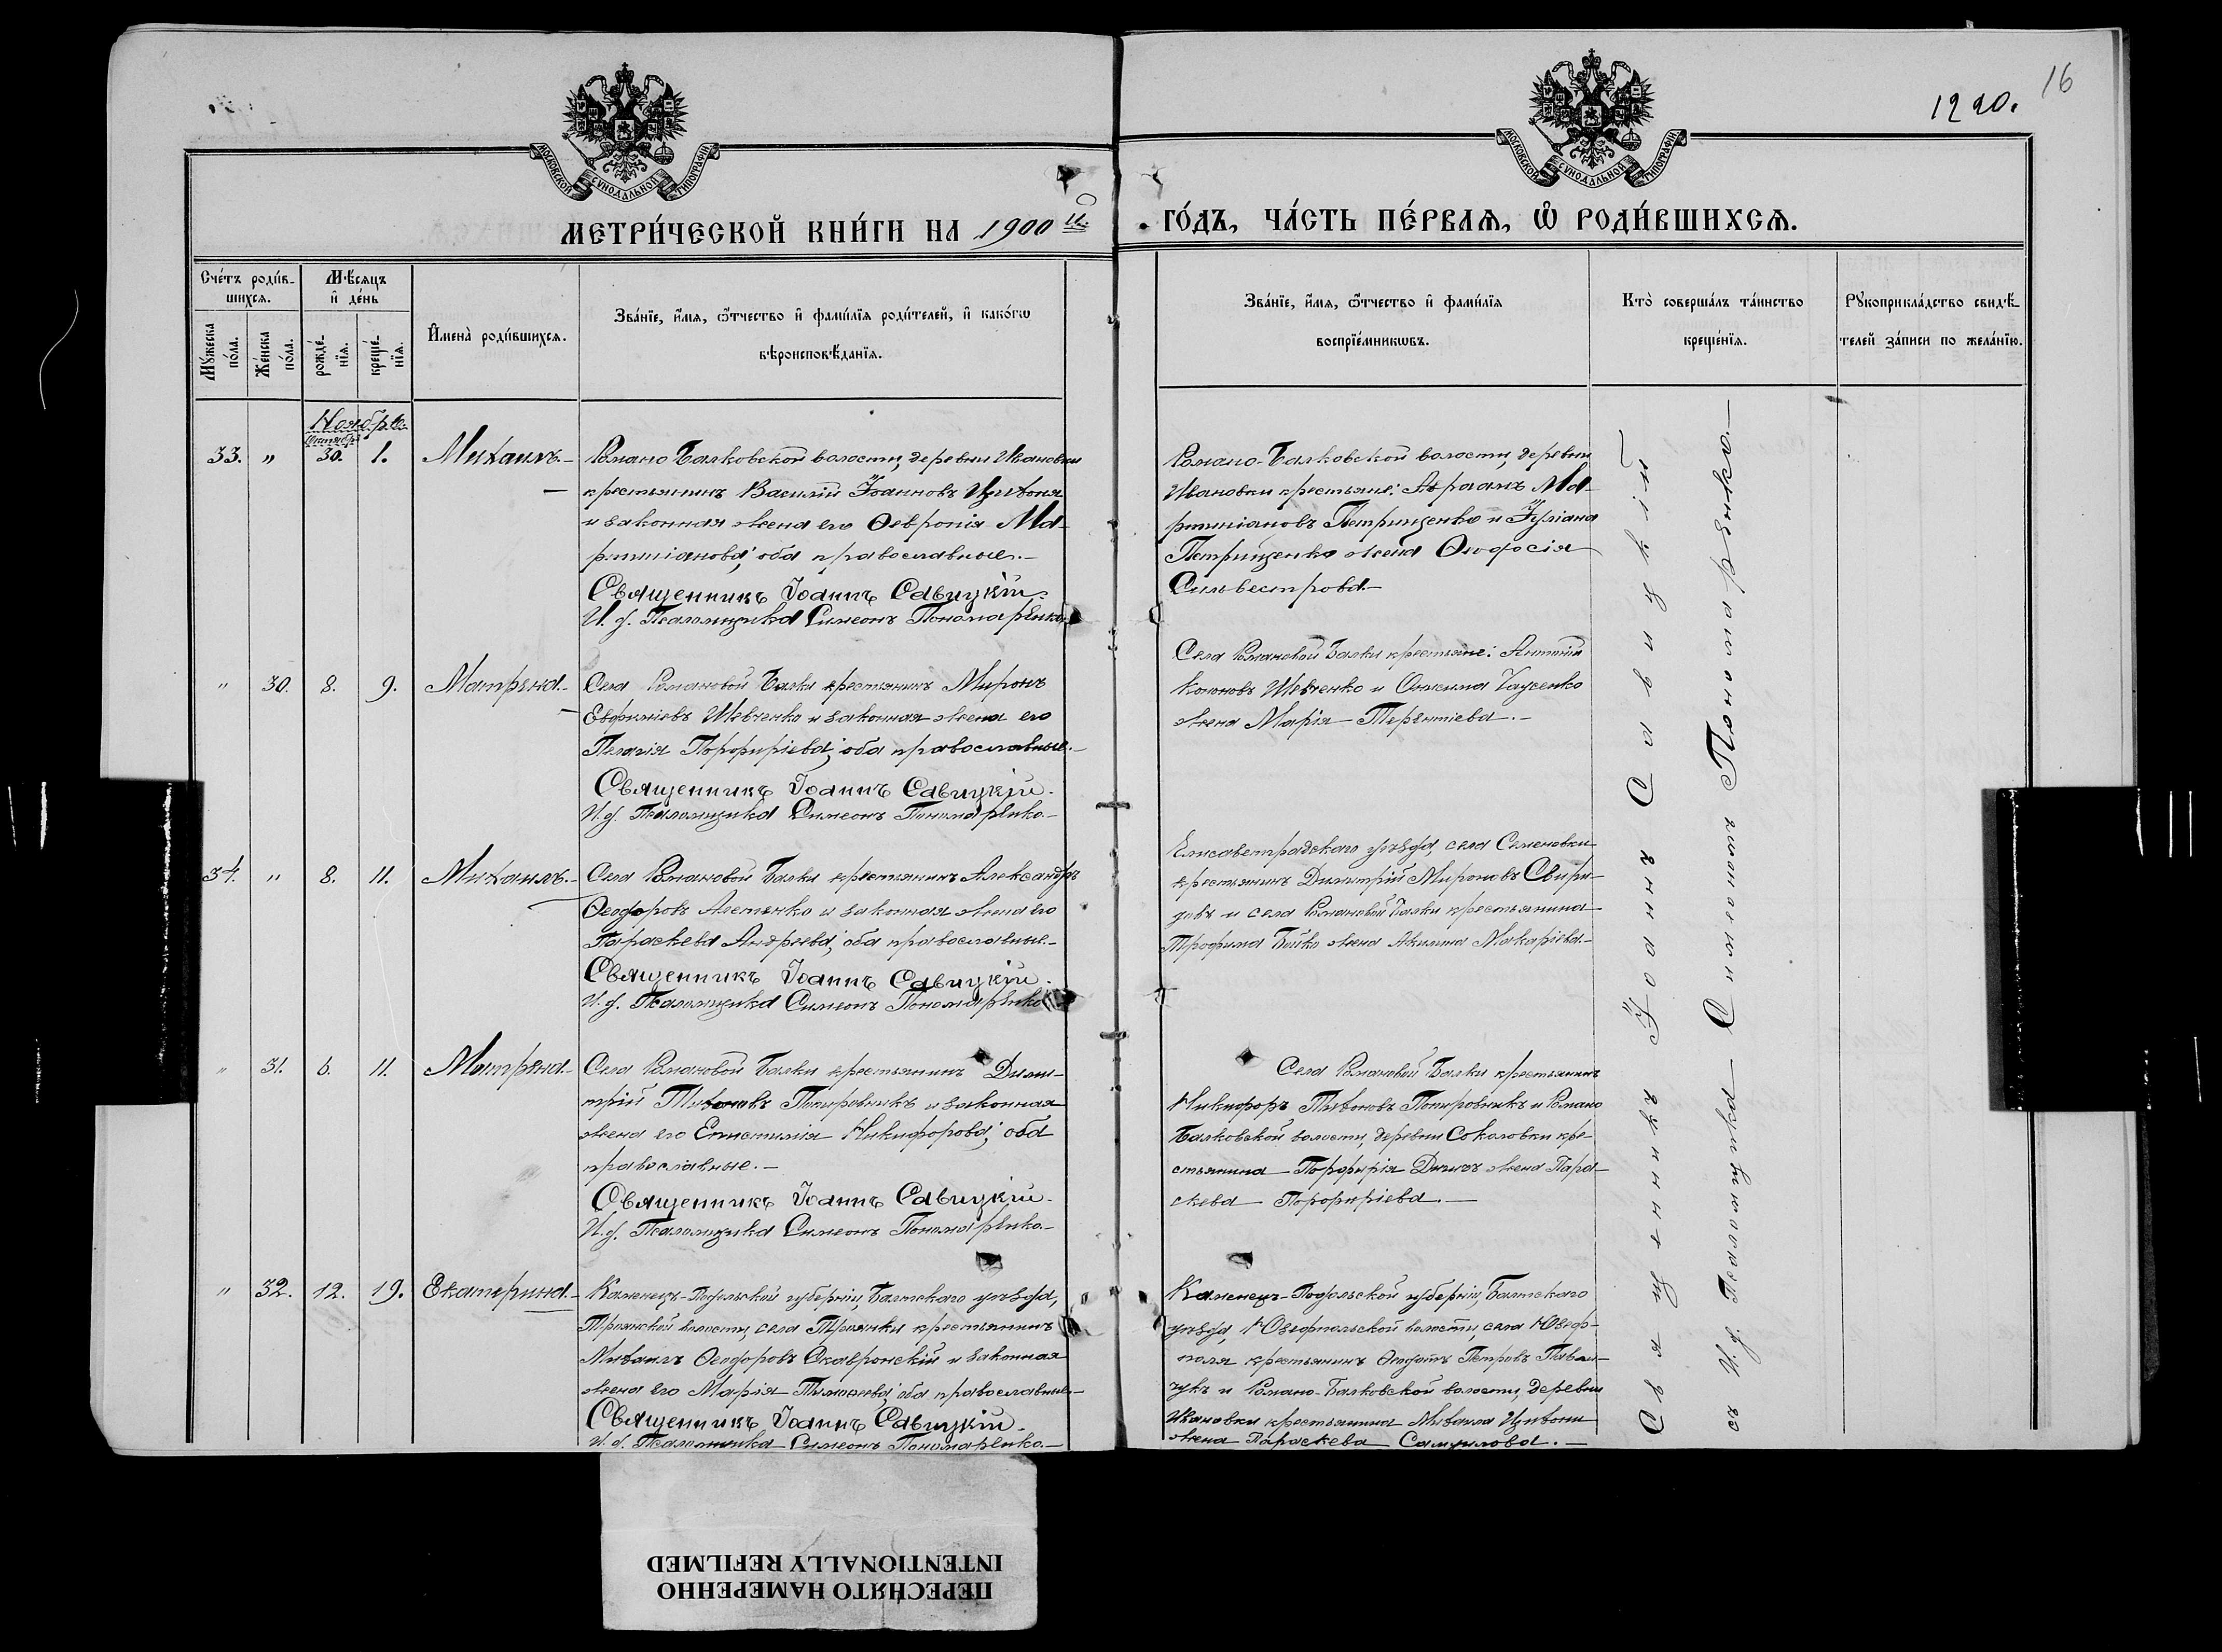 16
1220.
МОСКОВСКОЙ СѴНОДАЛЬНОЙ ТИПОГРАФІИ
МОСКОВСКОЙ СѴНОДАЛЬНОЙ ТИПОГРАФІИ
МЕТРИ́ЧЕСКОЙ КНИ́ГИ НА 1900 й
ГО́ДЪ, ЧА́СТЬ ПЕ́РВАѦ, Ѽ РОДИ́ВШИХСѦ.
Сче́тъ роди́в-
шихсѧ.
Мѣ́сѧцъ
и де́нь
Мꙋжеска
по́ла.
Же́нска
по́ла.
рожде́-
нїѧ.
креще́-
нїѧ.
И҆мена̀ роди́вшихсѧ.
Зва́нїе, и҆́мѧ, ѻ҆́тчество и҆ фами́лїѧ роди́телей, и҆ како́гѡ
вѣроисповѣ́данїѧ.
Зва́нїе, и҆́мѧ, ѻ҆́тчество и҆ фами́лїѧ
воспрїе́мникѡвъ.
Кто̀ соверша́лъ та́инство
креще́нїѧ.
Рꙋкоприкла́дство свидѣ́-
телей за́писи по жела́нїю.
Ноябрь
Октября
33. " 30. 1. Михаилъ.-
Романо Балковской волости, деревни Ивановки
крестьянинъ Василій Іоанновъ Цихоня
и законная жена его Ѳевронія Ма-
ртиніанова; оба православные.-
Священникъ Іоаннъ Савицкій.
И. д. Псаломщика Симеонъ Пономаренко
Романо-Балковской волости, деревни
Ивановки крестьяне: Авраамъ Ма-
ртиніановъ Петрищенко и Іуліана
Петрищенко жена Ѳеодосія
Сильвестрова.-
" 30. 8. 9. Матрена.-
Села Романовой Балки крестьянинъ Миронъ
Евфиміевъ Шевченко и законная жена его
Пелагія Порфиріева; оба православные.-
Священникъ Іоаннъ Савицкій.
И. д. Псаломщика Симеонъ Пономаренко.-
Села Романовой Балки крестьяне: Антоній
Кононовъ Шевченко и Онисима Гаусенко
жена Марія Терентіева.-
34. " 8. 11. Михаилъ.-
Села Романовой Балки крестьянинъ Александръ
Ѳеодоровъ Алетенко и законная жена его
Параскева Андреева; оба православные.-
Священникъ Іоаннъ Савицкій.
И. д. Псаломщика Симеонъ Пономаренко
Елисаветградскаго уѣзда, села Семеновки
крестьянинъ Димитрій Мироновъ Свири-
довъ и села Романовой Балки крестьянина
Трофима Бойко жена Акилина Макаріева.-
" 31. 6. 11. Матрена.-
Села Романовой Балки крестьянинъ Дими-
трій Тихоновъ Попировникъ и законная
жена его Епистимія Никифорова; оба
православные.-
Священникъ Іоаннъ Савицкій.
И. д. Псаломщика Симеонъ Пономаренко.-
Села Романовой Балки крестьянинъ
Никифоръ Тихоновъ Попировникъ и Романо
Балковской волости, деревни Соколовки кре-
стьянина Порфирія жена Пара-
скева Порфиріева.-
" 32. 12. 19. Екатерина.-
Каменецъ-Подольской губерніи, Балтскаго уѣзда,
Троянской волости, села Троянки крестьянинъ
Михаилъ Ѳеодоровъ Скавронскій и законная
жена его Марія Тимофеева; оба православные.-
Священникъ Іоаннъ Савицкій.
И. д. Псаломщика Симеонъ Пономаренко.-
Каменецъ-Подольской губерніи, Балтскаго
уѣзда, Юзефпольской волости, села Юзеф-
поля крестьянинъ Ѳеодотъ Петровъ Павли-
чукъ и Романо-Балковской волости, деревни
Ивановки крестьянина Михаила Цихони
жена Параскева Самуилова.-
Священникъ Іоаннъ Савицкій
съ И. д. Псаломщика Симеономъ Пономаренко.-
ПЕРЕСНЯТО НАМЕРЕННО
INTENTIONALLY REFILMED